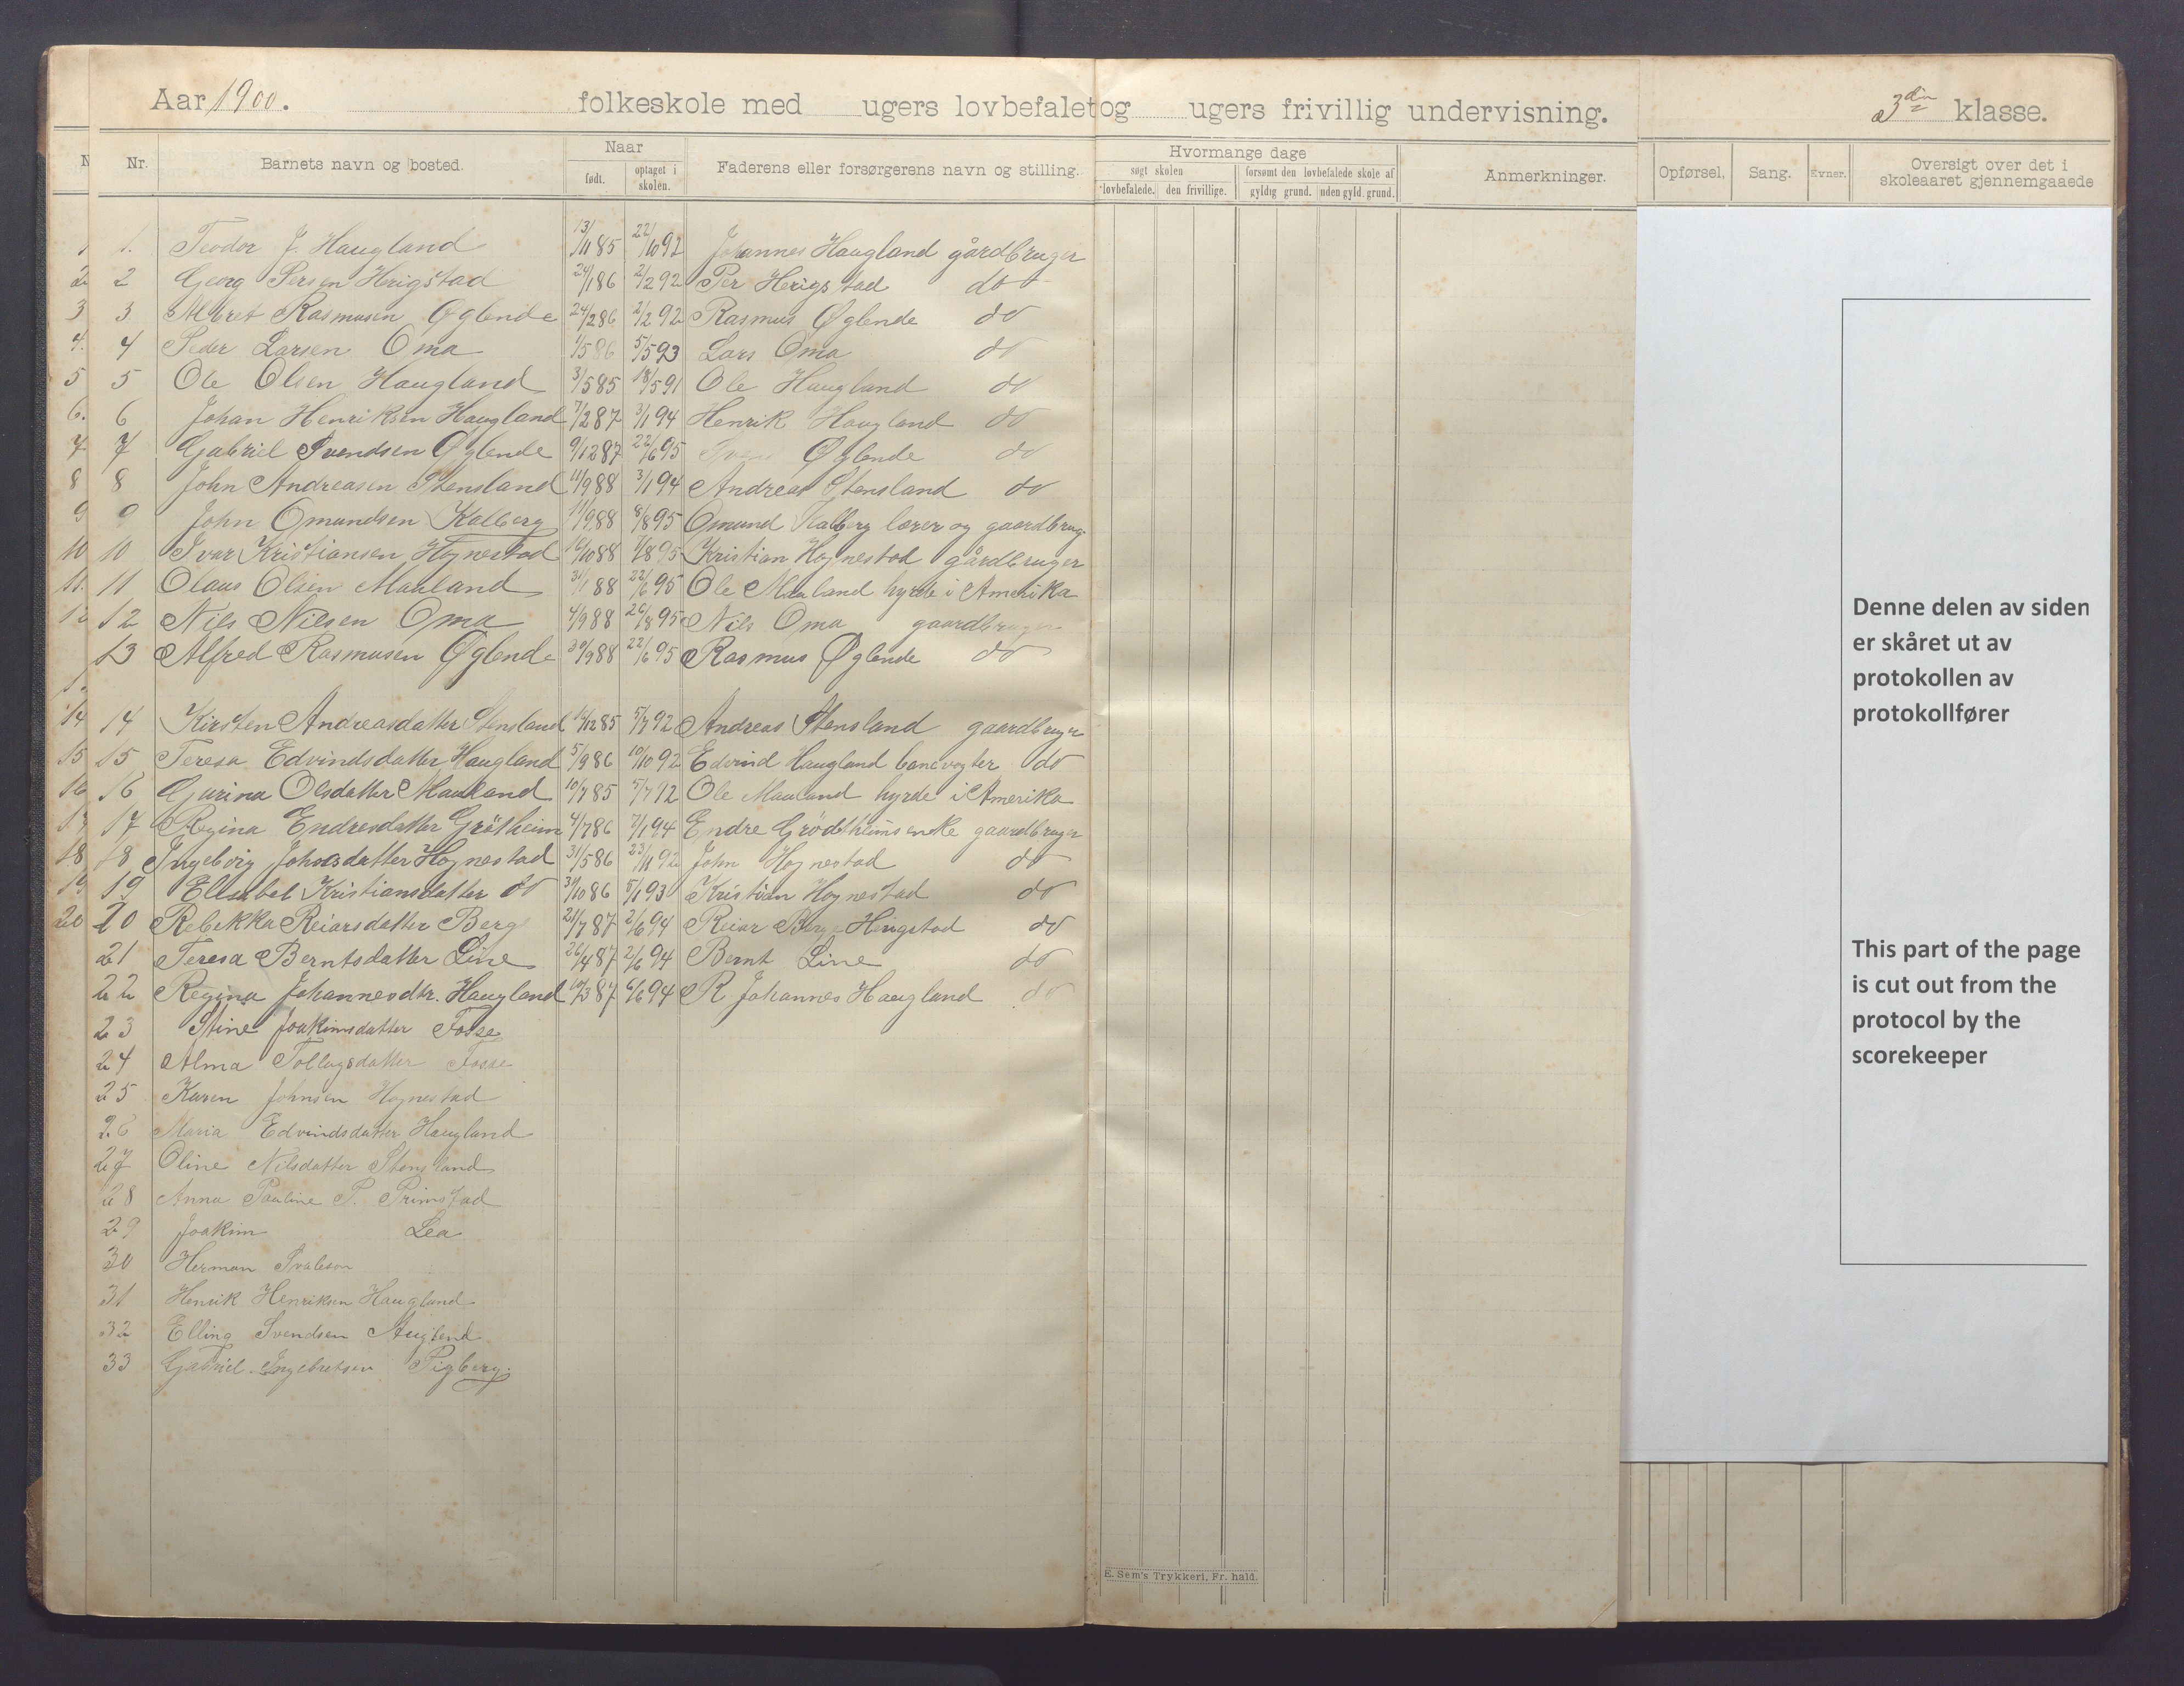 Aar 1900. folkeskole med ugers lovbefalet og ugers frivillig undervisning. 3die klasse.
Nr. Barnets navn og bosted. Naar født. optaget i skolen. Faderens eller forsørgerens navn og stilling. Hvormange dage søgt skolen lovbefalede. den frivillige. forsømt den lovbefalede skole af gyldig grund. uden gyld. grund. Anmerkninger. Opførsel. Sang. Evner. Oversigt over det i skoleaaret gjennemgaaede
1. Teodor J. Haugland 13/11 85 22/10 92 Johannes Haugland gårdbruger
2 Georg Persen Herigstad 24/1 86 2/2 92 Per Herigstad do
3 Rasmusen Øglende 24/2 86 2/2 92 Rasmus Øglende do
4 Peder Larsen Oma 1/5 86 5/5 93 Lars Oma do
5 Ole Olsen Haugland 3/5 85 18/5 91 Ole Haugland do
6 Johan Henriksen Haugland 7/2 87 3/1 94 Henrik Haugland do
7 Gabriel Svendsen Øglende 9/12 87 22/6 95 Sven Øglende do
8 John Andreasen Stensland 11/9 88 3/1 94 Andreas Stensland do
9 John Omundsen Kalberg 11/9 88 8/8 95 Omund Kalberg lærer og gaardbrug.
10 Ivar Kristiansen Hognestad 16/10 88 7/8 95 Kristian Hognestad gårdbruger
11 Olaus Olsen Maaland 31/1 88 22/6 95 Ole Maaland hyrde i Amerika
12 Nils Nilsen Oma 4/9 88 26/8 95 Nils Oma gaardbruger
13 Alfred Rasmusen Øglende 30/9 88 22/6 95 Rasmus Øglende do
14 Kirsten Andreasdatter Stensland 14/12 85 5/7 92 Andreas Stensland gaardbruger
15 Teresa Edvindsdatter Haugland 5/9 86 10/10 92 Edvind Haugland banevogter do
16 Gurina Olsdatter Maaland 10/7 85 5/7 92 Ole Maaland hyrde i Amerika
17 Regina Endresdatter Grøtheim 4/7 86 7/1 94 Endre Grødtheims enke gaardbruger
18 Ingeborg Johnsdatter Hognestad 31/5 86 23/11 92 John Hognestad do
19 Elisabet Kristiansdatter do 31/10 86 5/1 93 Kristian Hognestad do
20 Rebekka Reiarsdatter Berg 21/7 87 2/6 94 Reiar Berg Herigstad do
21 Teresa Berntsdatter Line 26/4 87 2/6 94 Bernt Line do
22 Regina Johannesdtr. Haugland 10/3 87 6/6 94 R Johannes Haugland do
23 Stine Joakimsdatter Fosse
24 Alma Tollagsdatter Fosse
25 Karen Johnsen Hognestad
26 Maria Edvindsdatter Haugland
27 Oline Nilsdatter Stensland
28 Anna Pauline P. Primstad
29 Joakim Lea
30 Herman
31 Henrik Henriksen Haugland
32 Elling Svendsen
33 Gabriel Ingebretsen Pigberg.
E. Sem's Trykkeri, Fr. hald.
Denne delen av siden
er skåret ut av
protokollen av
protokollfører
This part of the page
is cut out from the
protocol by the
scorekeeper